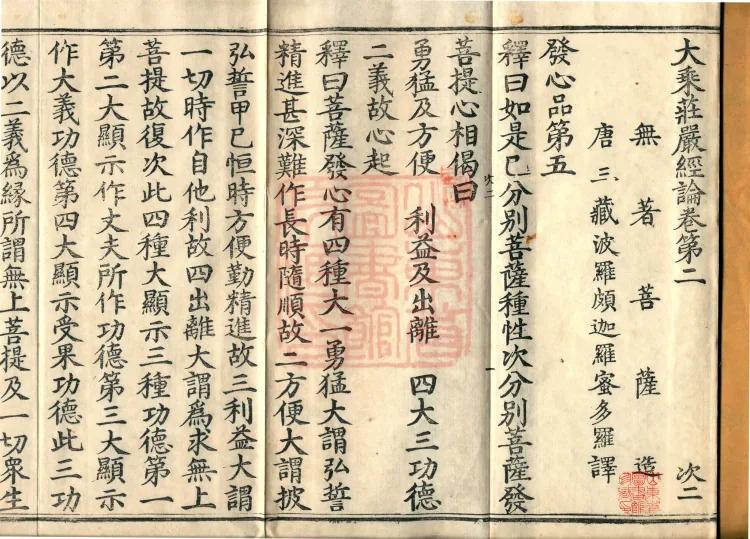 大乘莊嚴經論卷第二 次二
無著菩薩造
唐三藏波羅頗迦羅蜜多羅譯
發心品第五
釋曰如是已分別菩薩種性次分別菩薩發
菩提心相偈曰
次二
勇猛及方便 利益及出離 四大三功德
二義故心起
釋曰菩薩發心有四種大一勇猛大謂弘誓
精進甚深難作長時隨順故二方便大謂披
弘誓甲已恒時方便勤精進故三利益大謂
一切時作自他利故四出離大謂爲求無上
菩提故復次此四種大顯示三種功德第一
第二大顯示作丈夫所作功德第三大顯示
作大義功德第四大顯示受果功德此三功
德以二義爲緣所謂無上菩提及一切衆生